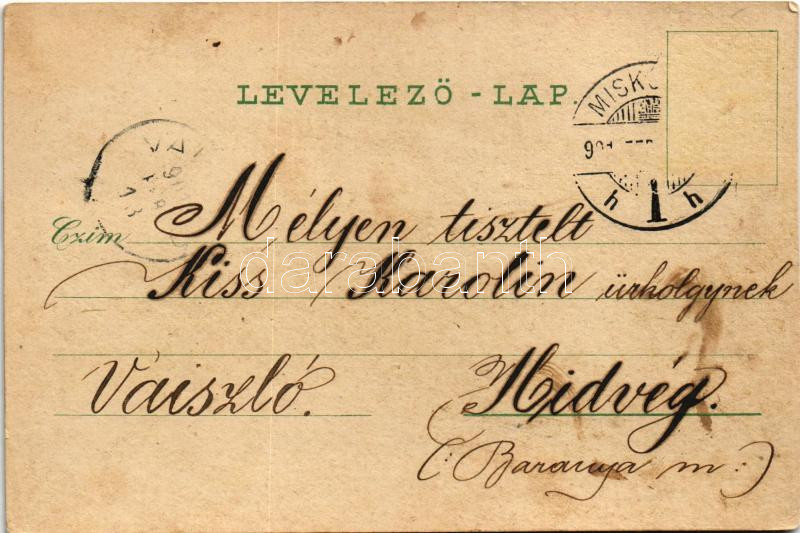 LEVELEZÖ - LAP.
MISKO
901
h 1 h
VAI
Czim Mélyen tisztelt
Kiss Karolin úrhölgynek
Vaiszló. Hidvég.
(: Baranya m :)
darabanth